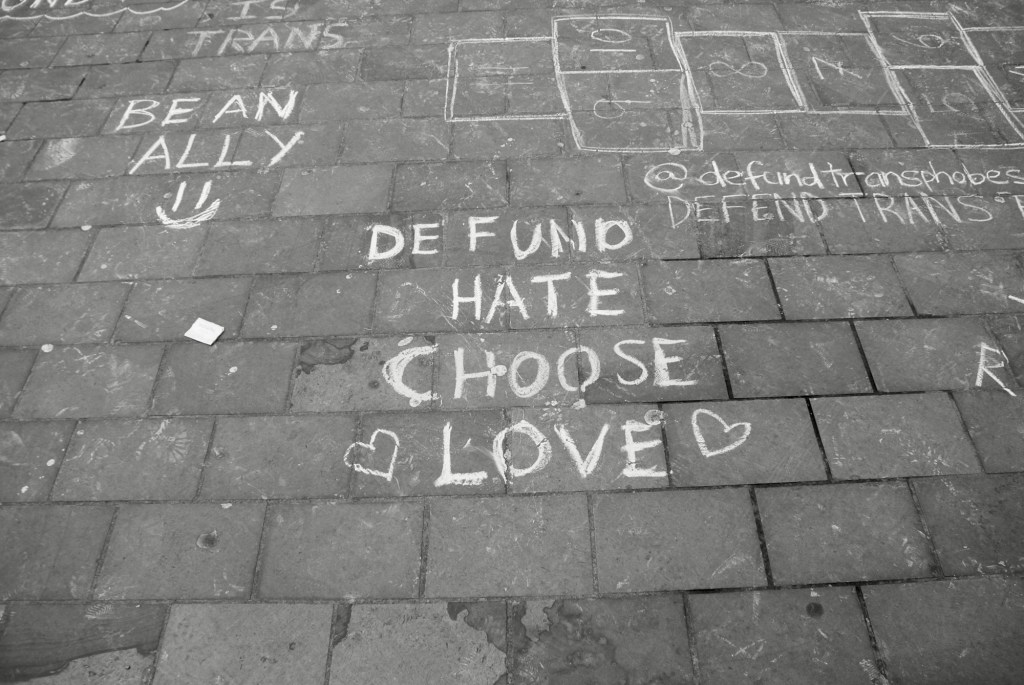 IS
TRANS
BE AN
ALLY
@defundtransphobes
DEFEND TRANS
DEFUND
HATE
CHOOSE
LOVE
R